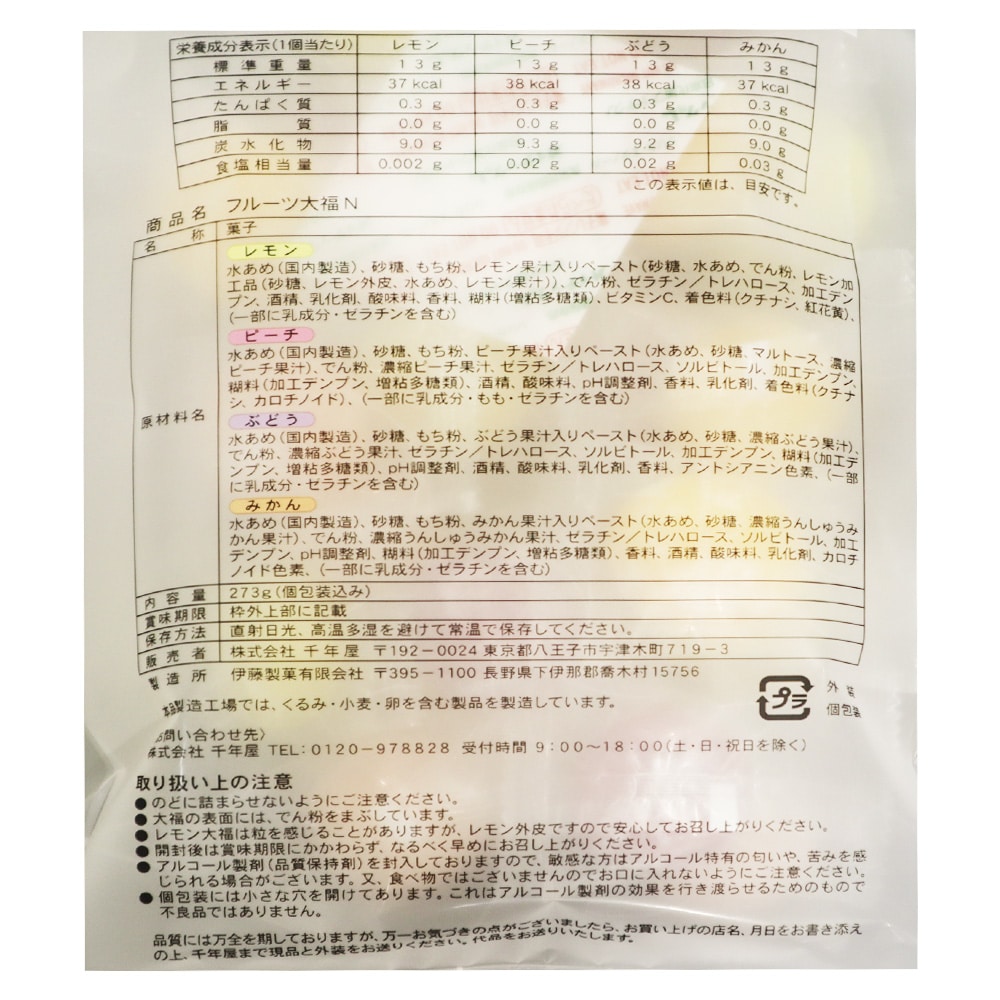 栄養成分表示(1個当たり) レモン ピーチ ぶどう みかん
標準重量 13g 13g 13g 13g
エネルギー 37kcal 38kcal 38kcal 37kcal
たんぱく質 0.3g 0.3g 0.3g 0.3g
脂質 0.0g 0.0g 0.0g 0.0g
炭水化物 9.0g 9.3g 9.2g 9.0g
食塩相当量 0.002g 0.02g 0.02g 0.03g
この表示値は、目安です。
商品名 フルーツ大福N
名称 菓子
原材料名
レモン
水あめ(国内製造)、砂糖、もち粉、レモン果汁入りペースト(砂糖、水あめ、でん粉、レモン加
工品(砂糖、レモン外皮、水あめ、レモン果汁))、でん粉、ゼラチン/トレハロース、加工デン
プン、酒精、乳化剤、酸味料、香料、糊料(増粘多糖類)、ビタミンC、着色料(クチナシ、紅花黄)、
(一部に乳成分・ゼラチンを含む)
ピーチ
水あめ(国内製造)、砂糖、もち粉、ピーチ果汁入りペースト(水あめ、砂糖、マルトース、濃縮
ピーチ果汁)、でん粉、濃縮ピーチ果汁、ゼラチン/トレハロース、ソルビトール、加工デンプン、
糊料(加工デンプン、増粘多糖類)、酒精、酸味料、pH調整剤、香料、乳化剤、着色料(クチナ
シ、カロチノイド)、(一部に乳成分・もも・ゼラチンを含む)
ぶどう
水あめ(国内製造)、砂糖、もち粉、ぶどう果汁入りペースト(水あめ、砂糖、濃縮ぶどう果汁)、
でん粉、濃縮ぶどう果汁、ゼラチン/トレハロース、ソルビトール、加工デンプン、糊料(加工デ
ンプン、増粘多糖類)、pH調整剤、酒精、酸味料、乳化剤、香料、アントシアニン色素、(一部
に乳成分・ゼラチンを含む)
みかん
水あめ(国内製造)、砂糖、もち粉、みかん果汁入りペースト(水あめ、砂糖、濃縮うんしゅうみ
かん果汁)、でん粉、濃縮うんしゅうみかん果汁、ゼラチン/トレハロース、ソルビトール、加工
デンプン、pH調整剤、糊料(加工デンプン、増粘多糖類)、香料、酒精、酸味料、乳化剤、カロチ
ノイド色素、(一部に乳成分・ゼラチンを含む)
内容量 273g(個包装込み)
賞味期限 枠外上部に記載
保存方法 直射日光、高温多湿を避けて常温で保存してください。
販売者 株式会社 千年屋 〒192-0024 東京都八王子市宇津木町719-3
製造所 伊藤製菓有限会社 〒395-1100 長野県下伊那郡喬木村15756
本品製造工場では、くるみ・小麦・卵を含む製品を製造しています。
プラ 外装
個包装
お問い合わせ先〉
株式会社 千年屋 TEL:0120-978828 受付時間 9:00〜18:00(土・日・祝日を除く)
取り扱い上の注意
●のどに詰まらせないようにご注意ください。
●大福の表面には、でん粉をまぶしています。
●レモン大福は粒を感じることがありますが、レモン外皮ですので安心してお召し上がりください。
●開封後は賞味期限にかかわらず、なるべく早めにお召し上がりください。
●アルコール製剤(品質保持剤)を封入しておりますので、敏感な方はアルコール特有の匂いや、苦みを感
じられる場合がございます。又、食べ物ではございませんのでお口に入れないようにご注意ください。
●個包装には小さな穴を開けてあります。これはアルコール製剤の効果を行き渡らせるためのもので
不良品ではありません。
品質には万全を期しておりますが、万一お気づきの点がございましたら、お買い上げの店名、月日をお書き添え
の上、千年屋まで現品と外装をお送りください。代品をお送りいたします。